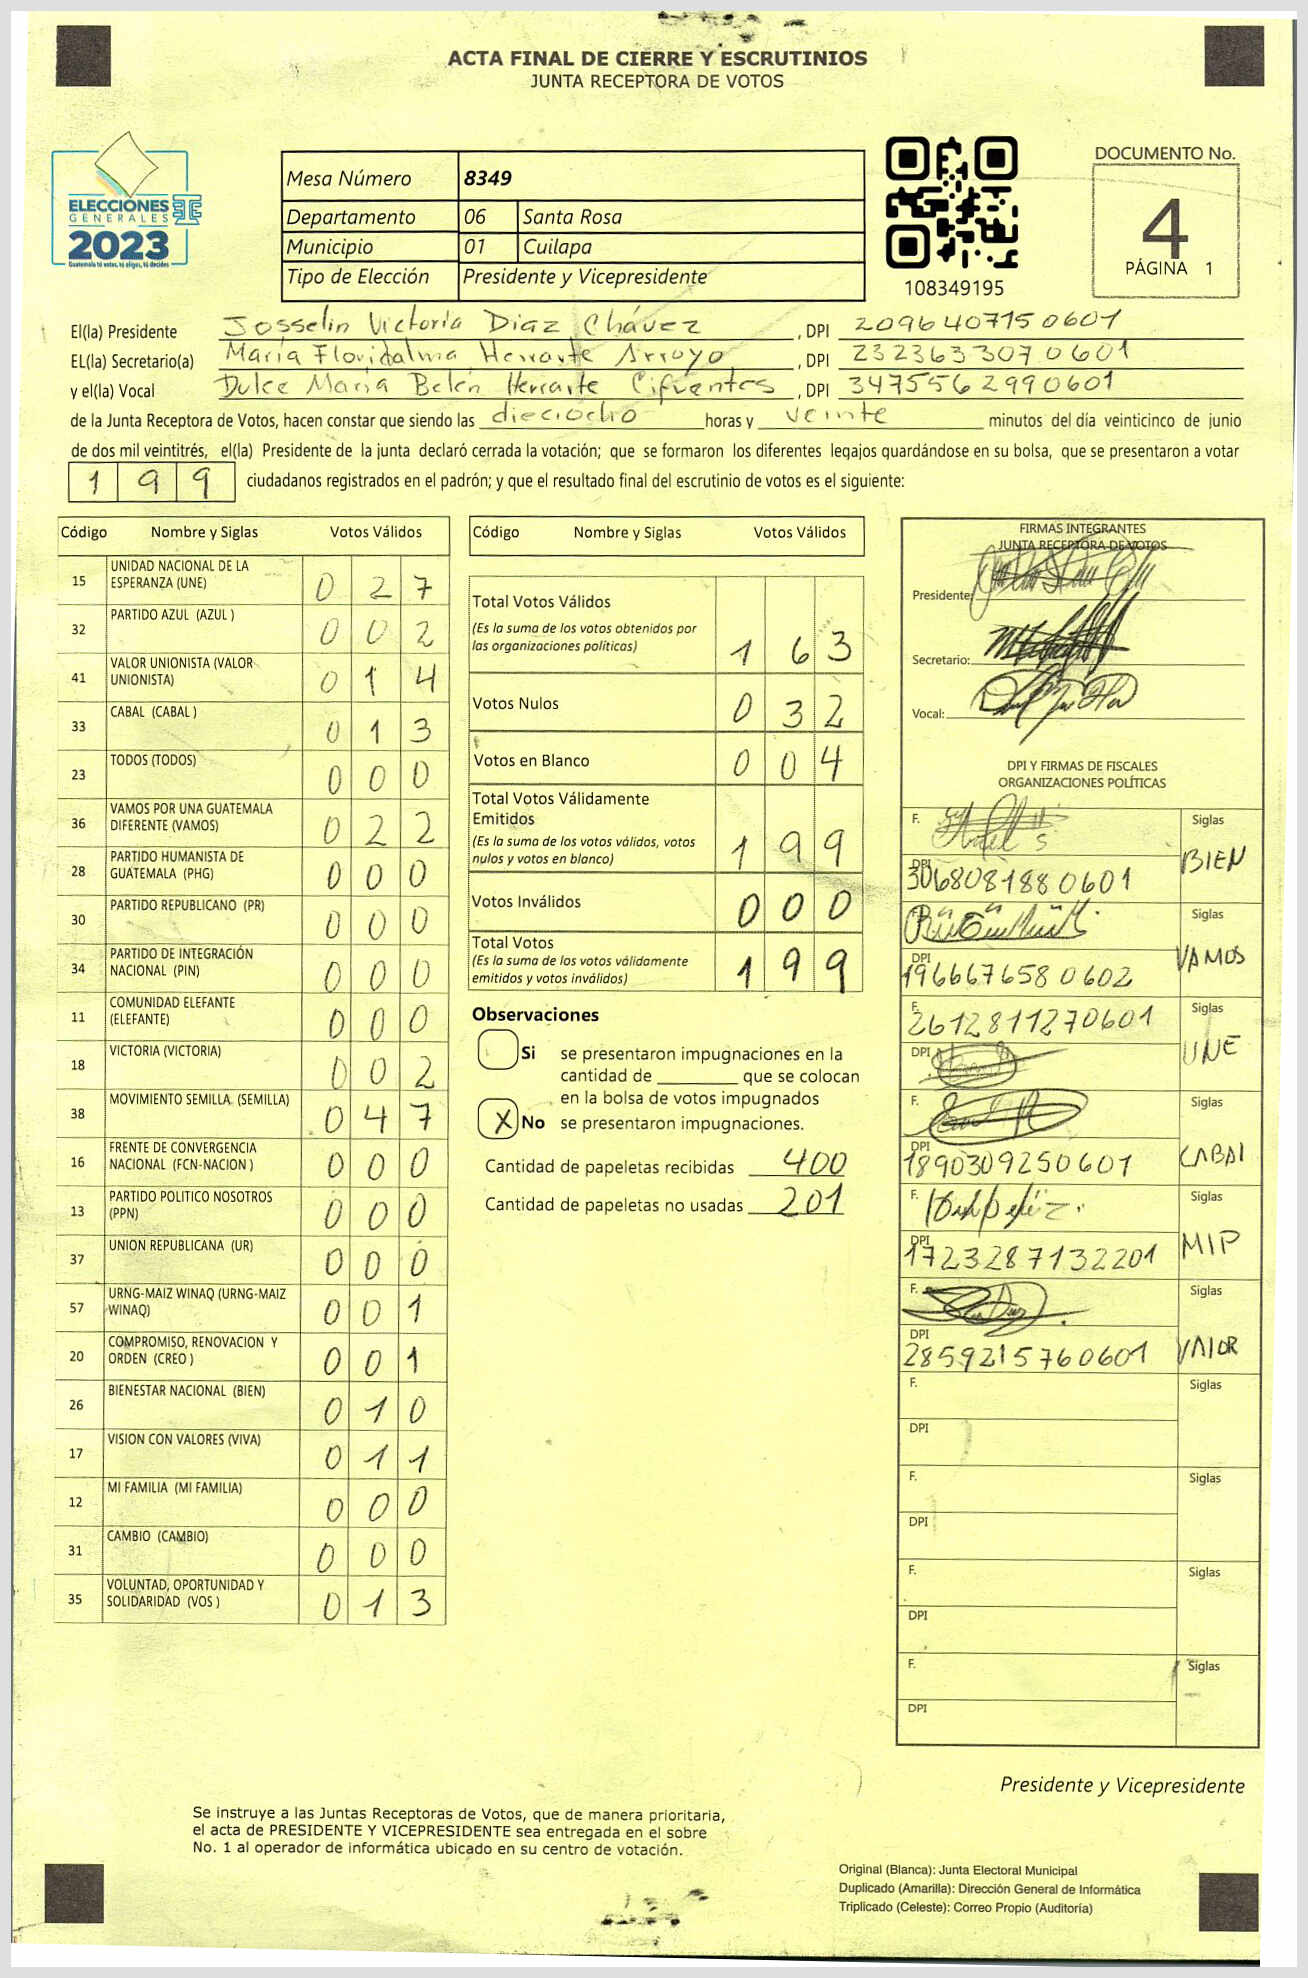 ACTA FINAL DE CIERRE Y ESCRUTINIOS
JUNTA RECEPTORA DE VOTOS
ELECCIONES
GENERALES
2023
Guatemala tú votas, tú eliges, tú decides
Mesa Número 8349
Departamento 06 Santa Rosa
Municipio 01 Cuilapa
Tipo de Elección Presidente y Vicepresidente
108349195
DOCUMENTO No.
4
PÁGINA 1
El(la) Presidente Josselin Victoria Diaz Chávez, DPI 2096407150601
EL(la) Secretario(a) María Floridalma Herrarte Arroyo, DPI 2323633070601
y el(la) Vocal Dulce María Belén Herrarte Cifuentes, DPI 3475562990601
de la Junta Receptora de Votos, hacen constar que siendo las dieciocho horas y veinte minutos del día veinticinco de junio
de dos mil veintitrés, el(la) Presidente de la junta declaró cerrada la votación; que se formaron los diferentes legajos guardándose en su bolsa, que se presentaron a votar
199 ciudadanos registrados en el padrón; y que el resultado final del escrutinio de votos es el siguiente:
Código Nombre y Siglas Votos Válidos
15 UNIDAD NACIONAL DE LA ESPERANZA (UNE) 027
32 PARTIDO AZUL (AZUL ) 002
41 VALOR UNIONISTA (VALOR UNIONISTA) 014
33 CABAL (CABAL ) 013
23 TODOS (TODOS) 000
36 VAMOS POR UNA GUATEMALA DIFERENTE (VAMOS) 022
28 PARTIDO HUMANISTA DE GUATEMALA (PHG) 000
30 PARTIDO REPUBLICANO (PR) 000
34 PARTIDO DE INTEGRACIÓN NACIONAL (PIN) 000
11 COMUNIDAD ELEFANTE (ELEFANTE) 000
18 VICTORIA (VICTORIA) 002
38 MOVIMIENTO SEMILLA (SEMILLA) 047
16 FRENTE DE CONVERGENCIA NACIONAL (FCN-NACION ) 000
13 PARTIDO POLITICO NOSOTROS (PPN) 000
37 UNION REPUBLICANA (UR) 000
57 URNG-MAIZ WINAQ (URNG-MAIZ WINAQ) 001
20 COMPROMISO, RENOVACION Y ORDEN (CREO ) 001
26 BIENESTAR NACIONAL (BIEN) 010
17 VISION CON VALORES (VIVA) 011
12 MI FAMILIA (MI FAMILIA) 000
31 CAMBIO (CAMBIO) 000
35 VOLUNTAD, OPORTUNIDAD Y SOLIDARIDAD (VOS ) 013
Código Nombre y Siglas Votos Válidos
Total Votos Válidos
(Es la suma de los votos obtenidos por
las organizaciones políticas) 163
Votos Nulos 032
Votos en Blanco 004
Total Votos Válidamente
Emitidos
(Es la suma de los votos válidos, votos
nulos y votos en blanco) 199
Votos Inválidos 000
Total Votos
(Es la suma de los votos válidamente
emitidos y votos inválidos) 199
Observaciones
Si se presentaron impugnaciones en la
cantidad de ________ que se colocan
en la bolsa de votos impugnados
X No se presentaron impugnaciones.
Cantidad de papeletas recibidas 400
Cantidad de papeletas no usadas 201
FIRMAS INTEGRANTES
JUNTA RECEPTORA DE VOTOS
Presidente:
Secretario:
Vocal:
DPI Y FIRMAS DE FISCALES
ORGANIZACIONES POLÍTICAS
F. Siglas
DPI 3068081880601 BIEN
Siglas
DPI 1966676580602 VAMOS
F. 2612811270601 Siglas
DPI UNE
F. Siglas
DPI 1890309250601 CABAL
F. Siglas
DPI 1723287132201 MIP
F. Siglas
DPI 2859215760601 VALOR
F. Siglas
DPI
F. Siglas
DPI
F. Siglas
DPI
F. Siglas
DPI
Presidente y Vicepresidente
Se instruye a las Juntas Receptoras de Votos, que de manera prioritaria,
el acta de PRESIDENTE Y VICEPRESIDENTE sea entregada en el sobre
No. 1 al operador de informática ubicado en su centro de votación.
Original (Blanca): Junta Electoral Municipal
Duplicado (Amarilla): Dirección General de Informática
Triplicado (Celeste): Correo Propio (Auditoría)